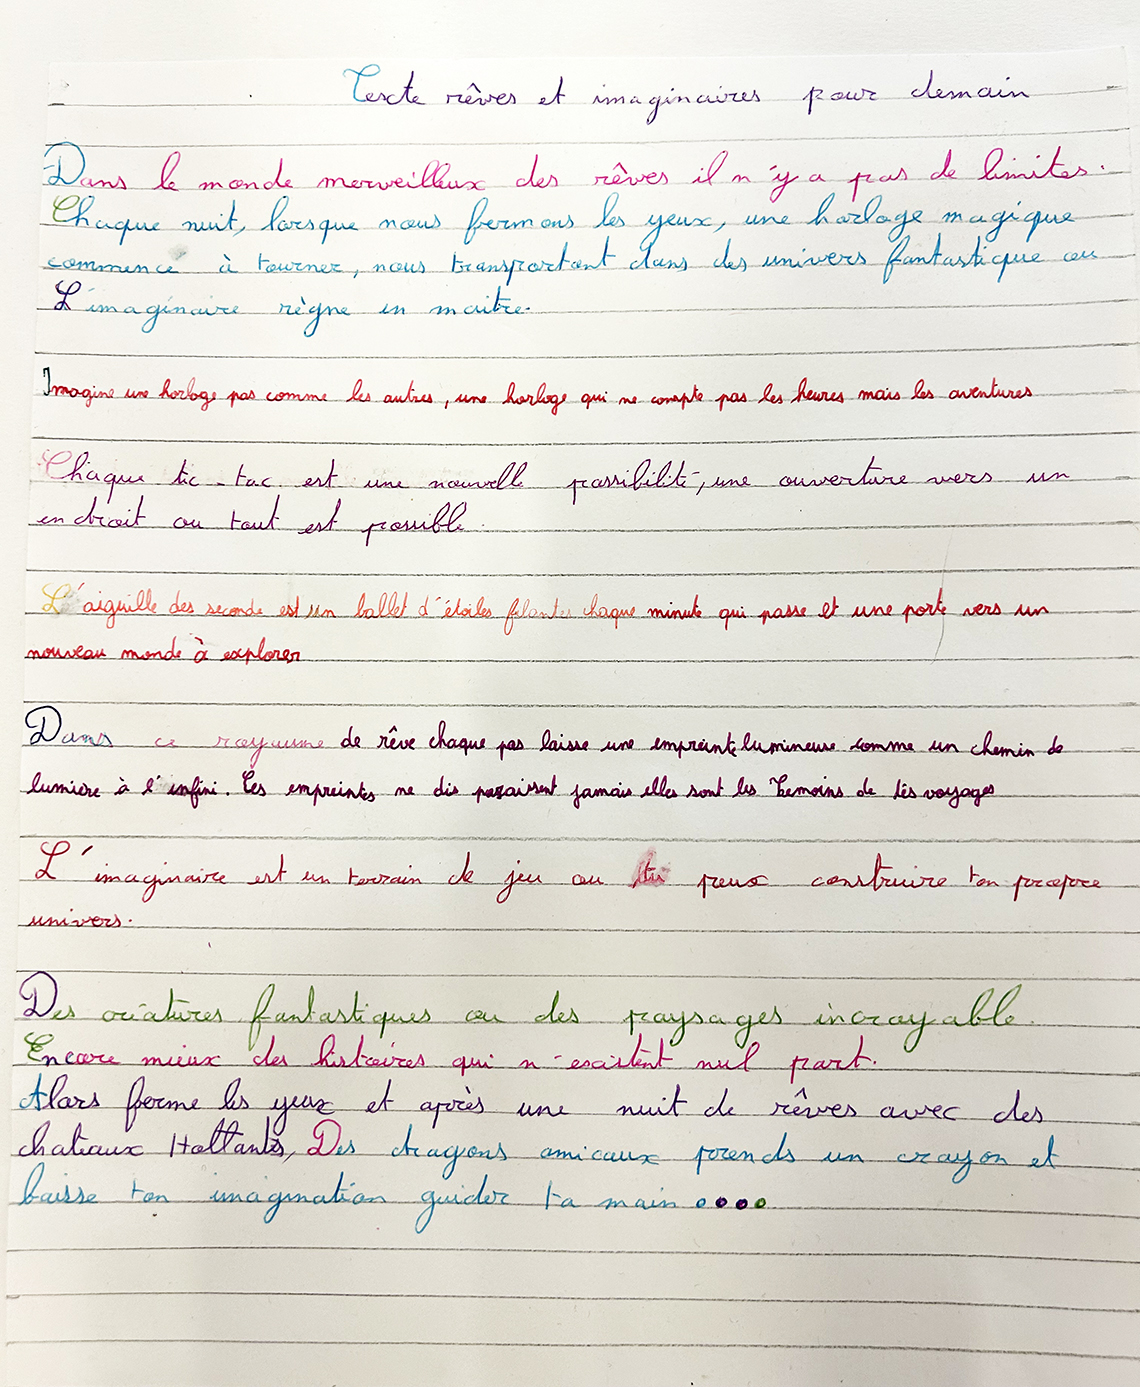 Texte rêves et imaginaires pour demain
Dans le monde merveilleux des rêves il n'y a pas de limites.
Chaque nuit, lorsque nous fermons les yeux, une horloge magique
commence à tourner, nous transportant dans des univers fantastique ou
L'imaginaire règne en maitre.
Imagine une horloge pas comme les autres, une horloge qui ne compte pas les heures mais les aventures
Chaque tic-tac est une nouvelle possibilité, une ouverture vers un
endroit ou tout est possible.
L'aiguille des seconde est un ballet d'étoiles filantes chaque minute qui passe et une porte vers un
nouveau monde à explorer
Dans ce royaume de rêve chaque pas laisse une empreinte lumineuse comme un chemin de
lumière à l'infini. Ces empreintes ne dis paraissent jamais elles sont les temoins de tes voyages
L'imaginaire est un terrain de jeu ou tu peux construire ton propre
univers.
Des créatures fantastiques ou des paysages incroyable.
Encore mieux des histoires qui n'existent nul part.
Alors ferme les yeux et après une nuit de rêves avec des
chateaux flottants, Des dragons amicaux prends un crayon et
laisse ton imagination guider ta main....